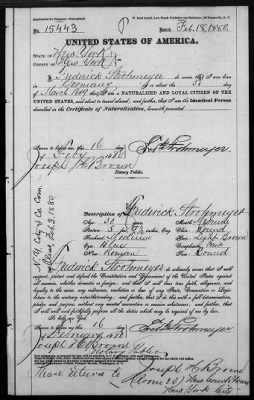 No. 15443
Feb. 18, 1880
UNITED STATES OF AMERICA.
STATE OF New York
COUNTY OF New York
I, Frederick Strohmeyer do swear that I was
born in Germany on or about the 31
day of March 1849 that I am a NATURALIZED AND LOYAL CITIZEN OF THE
UNITED STATES, and about to travel abroad; and further, that I am the identical Person
described in the Certificate of Naturalization, herewith presented.
Sworn to before me this 16
day of Feby 1880
Joseph H. Brown
Notary Public.
Fred Strohmeyer
N. Y. City Ct. Com.
Pleas, Feb. 3, 1880
Description of Frederick Strohmeyer
Age: 30
Mouth:
Stature:
Chin: Round
Forehead: Medium
Hair: Light Brown
Eyes: Blue
Complexion: Fair
Nose: Roman
Face: Round
I, Frederick Strohmeyer do solemnly swear that I will support,
protect and defend the Constitution and Government of the United States against
all enemies, whether domestic or foreign; and that I will bear true faith, allegiance and
loyalty to the same, any ordinance, resolution or law of any State, Convention or Legis-
lature to the contrary notwithstanding; and further, that I do this with a full determination,
pledge and purpose, without any mental reservation or evasion whatsoever; and further, that
I will well and faithfully perform all the duties which may be required of me by law.
So help me God.
Sworn to before me this 16
day of February 1880
Joseph H. Brown
Notary Public
Fred Strohmeyer
Please Return to
Joseph H. Brown
Room 25 New Court House
New York City